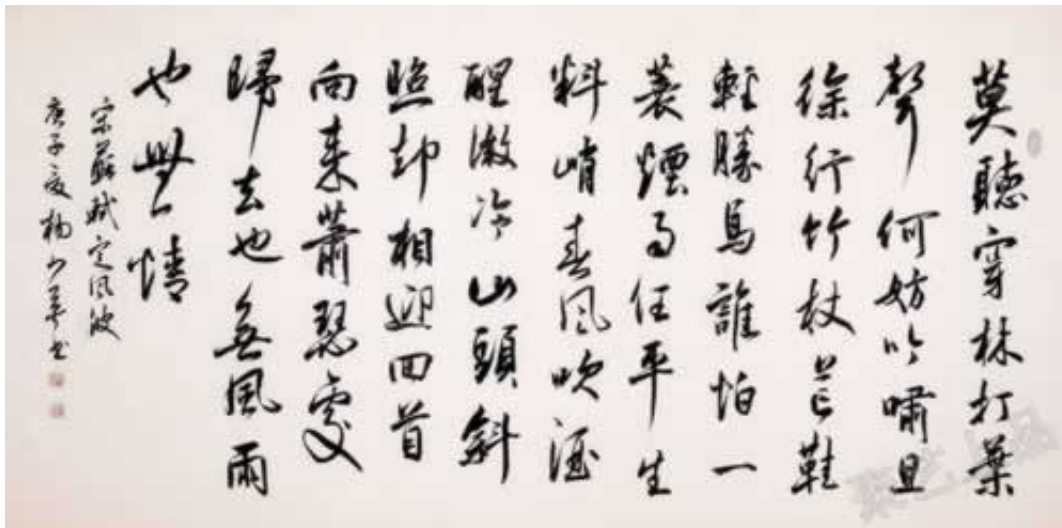 莫聽穿林打葉
聲何妨吟嘯且
徐行竹杖芒鞋
輕勝馬誰怕一
蓑煙雨任平生
料峭春风吹酒
醒微冷山頭斜
照却相迎回首
向来蕭瑟處
歸去也無風雨
也無情
宋蘇軾定风波
庚子夏楊少書